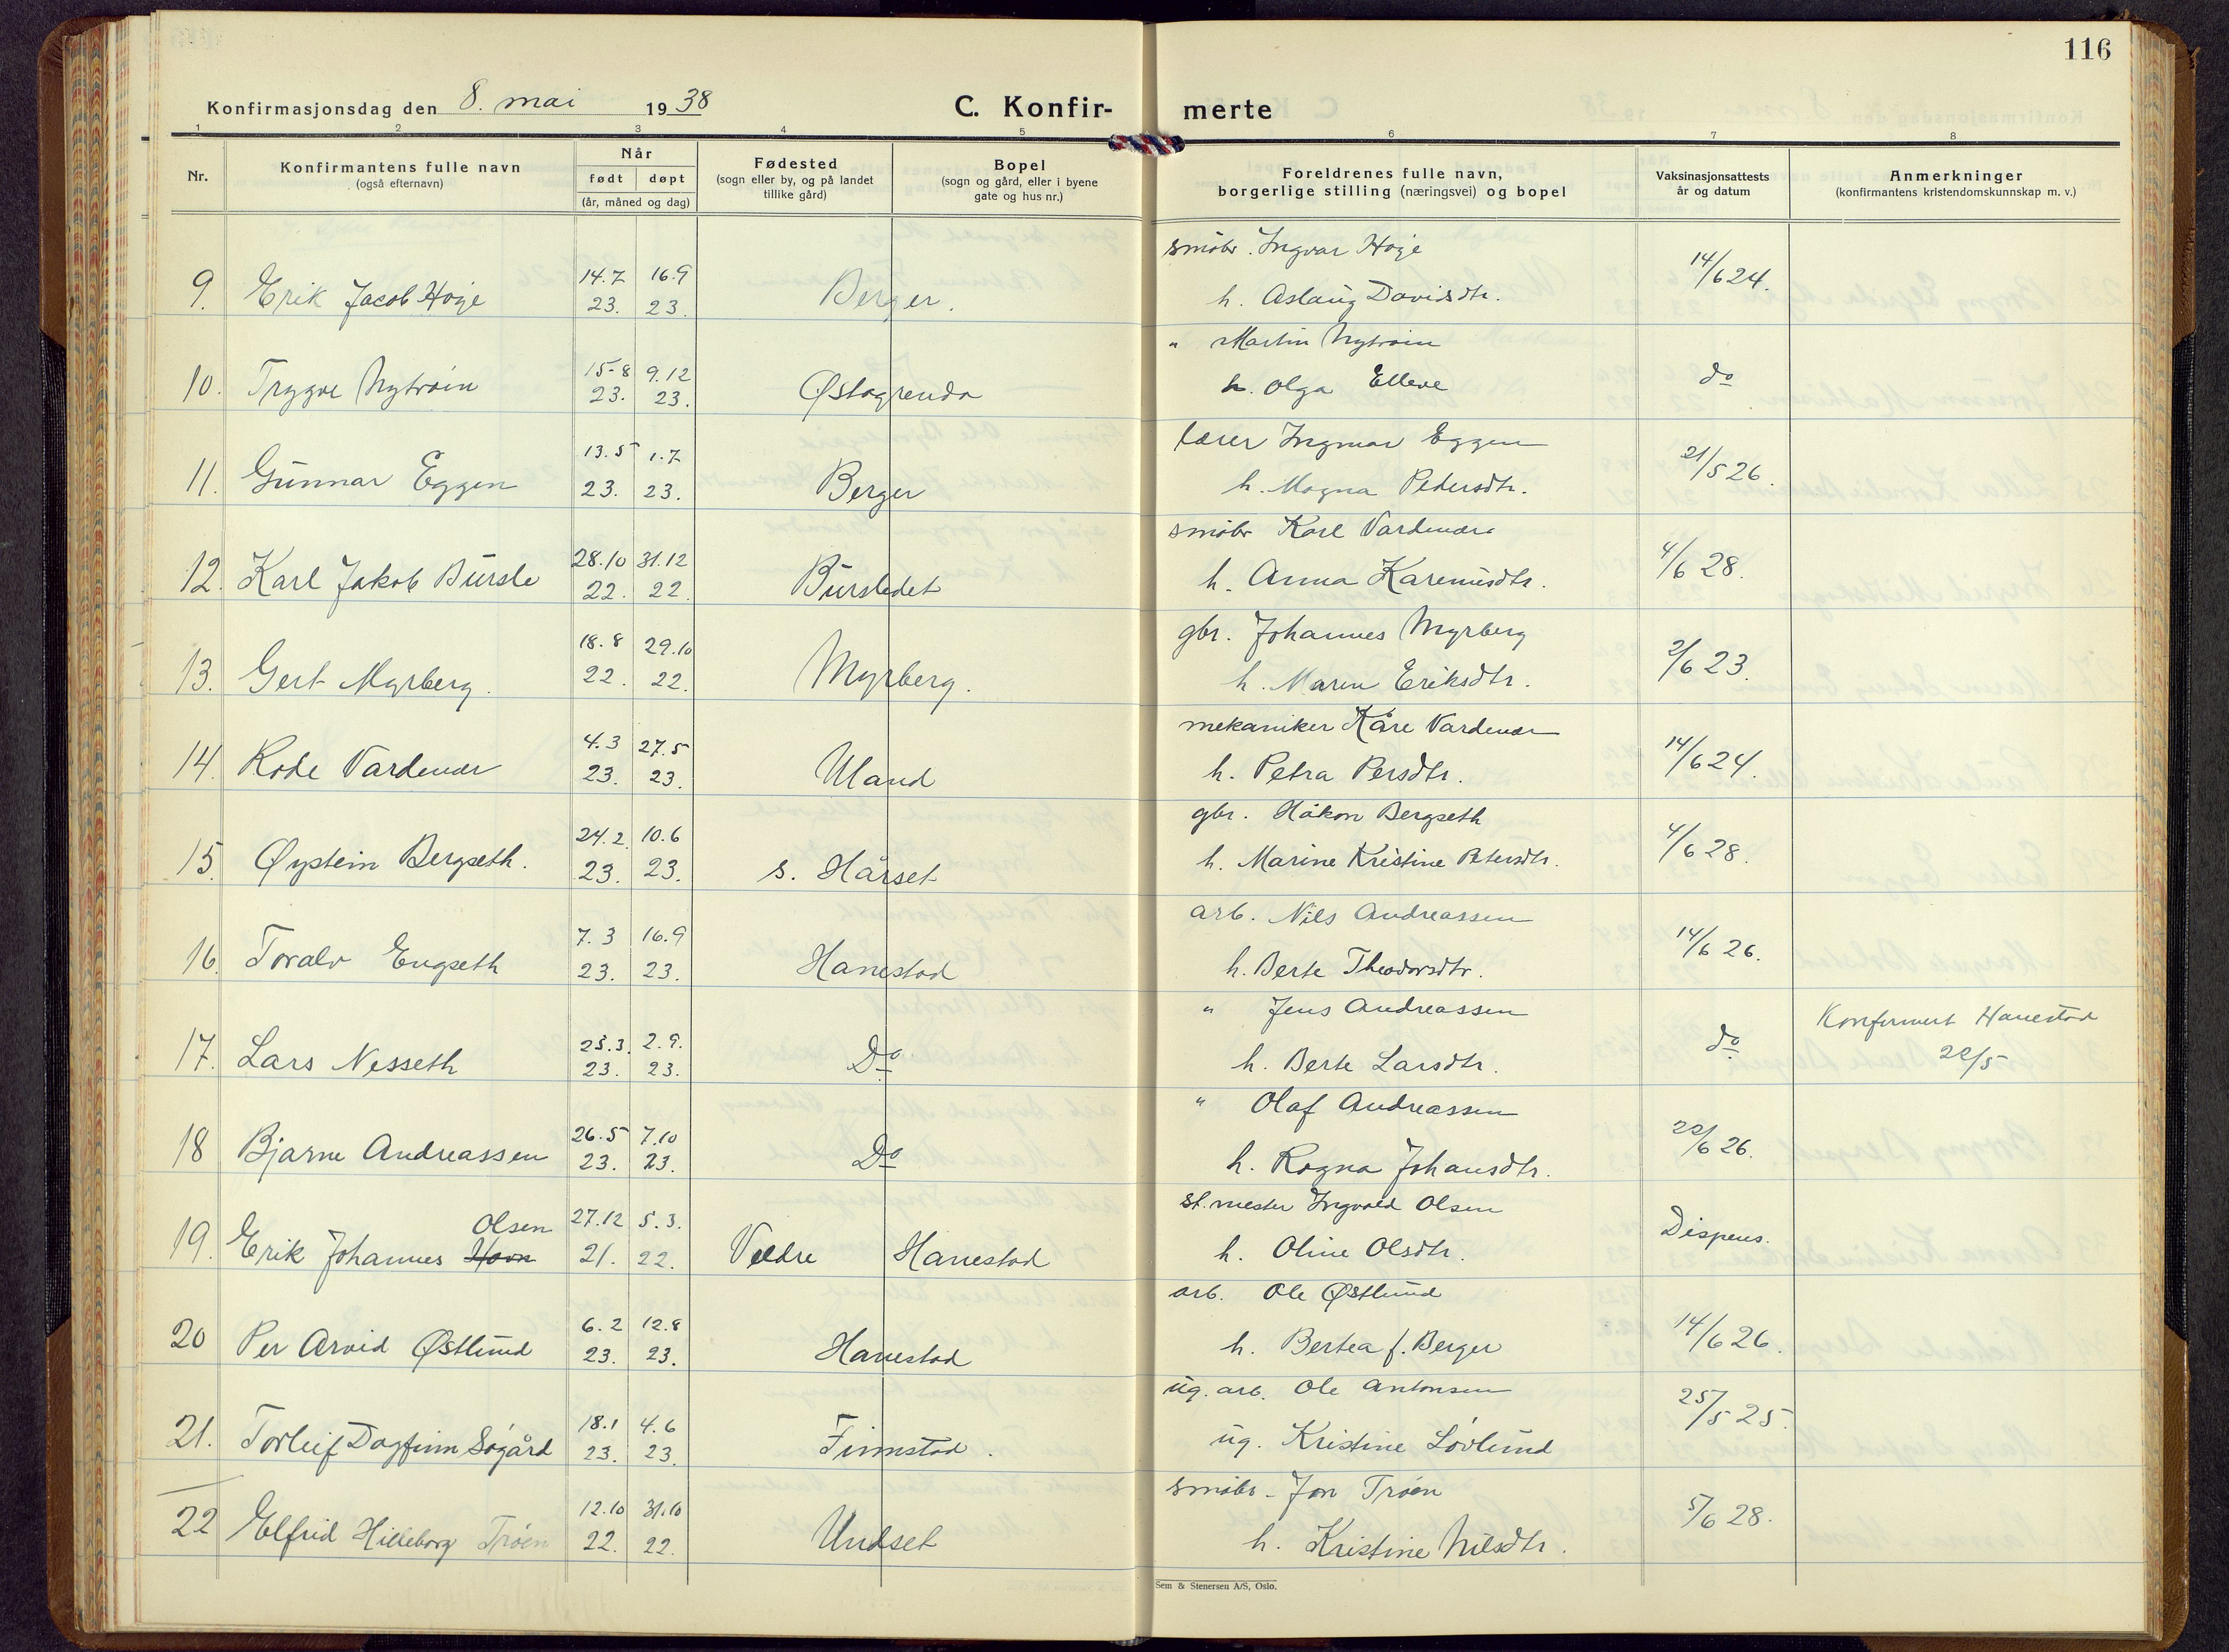 116
Konfirmasjonsdag den 8. mai 1938
C. Konfir- merte
1 2 3 4 5 6 7 8
Nr.
Konfirmantens fulle navn
(også efternavn)
Når
født døpt
(år, måned og dag)
Fødested
(sogn eller by, og på landet
tillike gård)
Bopel
(sogn og gård, eller i byene
gate og hus nr.)
Foreldrenes fulle navn,
borgerlige stilling (næringsvei) og bopel
Vaksinasjonsattests
år og datum
Anmerkninger
(konfirmantens kristendomskunnskap m. v.)
småbr. Ingvar Høye
9. Erik Jacob Høye 14.7 23. 16.9 23. Berger. 14/6 24.
h. Aslaug Davidsdtr.
" Martin Nytrøen
10. Trygve Nytrøen 15-8 23. 9.12 23. Østagrenda do
h. Olga Elleve
lærer Ingmar Eggen
11. Gunnar Eggen 13.5 23. 1.7 23. Berger 21/5 26.
h. Magna Pedersdtr.
småbr Karl Vardenær
12. Karl Jakob Bursle 28.10 22. 31.12 22. Bursledet 4/6 28.
h. Anna Karenusdtr.
gbr. Johannes Myrberg
13. Gert Myrberg. 18.8 22. 29.10 22. Myrberg. 2/6 23.
h. Maren Eriksdtr.
mekaniker Kåre Vardenær
14. Vardenær 4.3 23. 27.5 23. Uland 14/6 24.
h. Petra Persdtr.
gbr. Håkon Bergseth
15. Øystein Bergseth. 24.2 23. 10.6 23. s. Hårset 4/6 28.
h. Marine Kristine Petersdtr.
arb. Nils Andreassen
16. Toralv Engseth 7.3 23. 16.9 23. Hanestad 14/6 26.
h. Berte Theodorsdtr.
" Jens Andreassen
17. Lars Nesseth 23. 2.9. 23. Do do Konfirmert Hanestad
h. Berte Larsdtr.
" Olaf Andreassen
18 Bjarne Andreassen 26.5 23. 7.10 23. Do 22/6 26.
h. Ragna Johansdtr.
st.mester Ingvald Olsen
Olsen
19. Erik Johannes 27.12 21. 5.3. 22. Veldre Hanestad Dispens.
h. Oline Olsdtr.
arb. Ole Østlund
20 Per Arvid Østlund 6.2 23. 12.8 23. Hanestad 14/6 26.
h. Bertea f. Berger
ug. arb. Ole Antonsen
21. Torleif Dagfinn Søgård 18.1 23. 4.6 23. Finnstad. 25/5 25.
ug. Kristine Løvlund
småbr. Jon Trøen
22 Elfrid Hilleborg Trøen 12.10 22. 31.10 22. Undset 5/6 28.
h. Kristine Nilsdtr.
Sem & Stenersen A/S, Oslo.